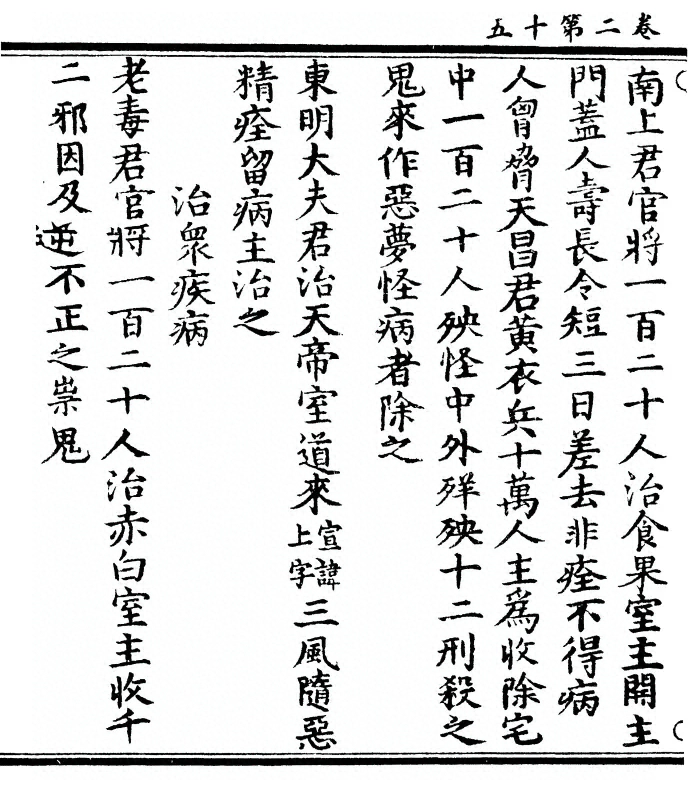 卷二第十五
南上君官將一百二十人治食果室主開主
門蓋人壽長令短三日差去非痊不得病
人胷脅天昌君黃衣兵十萬人主為收除宅
中一百二十人殃怪中外殃十二刑殺之
鬼來作惡夢怪病者除之
東明大夫君治天帝室道來宣諱上字三風隨惡
精痊留病主治之
治衆疾病
老毒君官將一百二十人治赤白室主收千
二邪因及逆不正之祟鬼